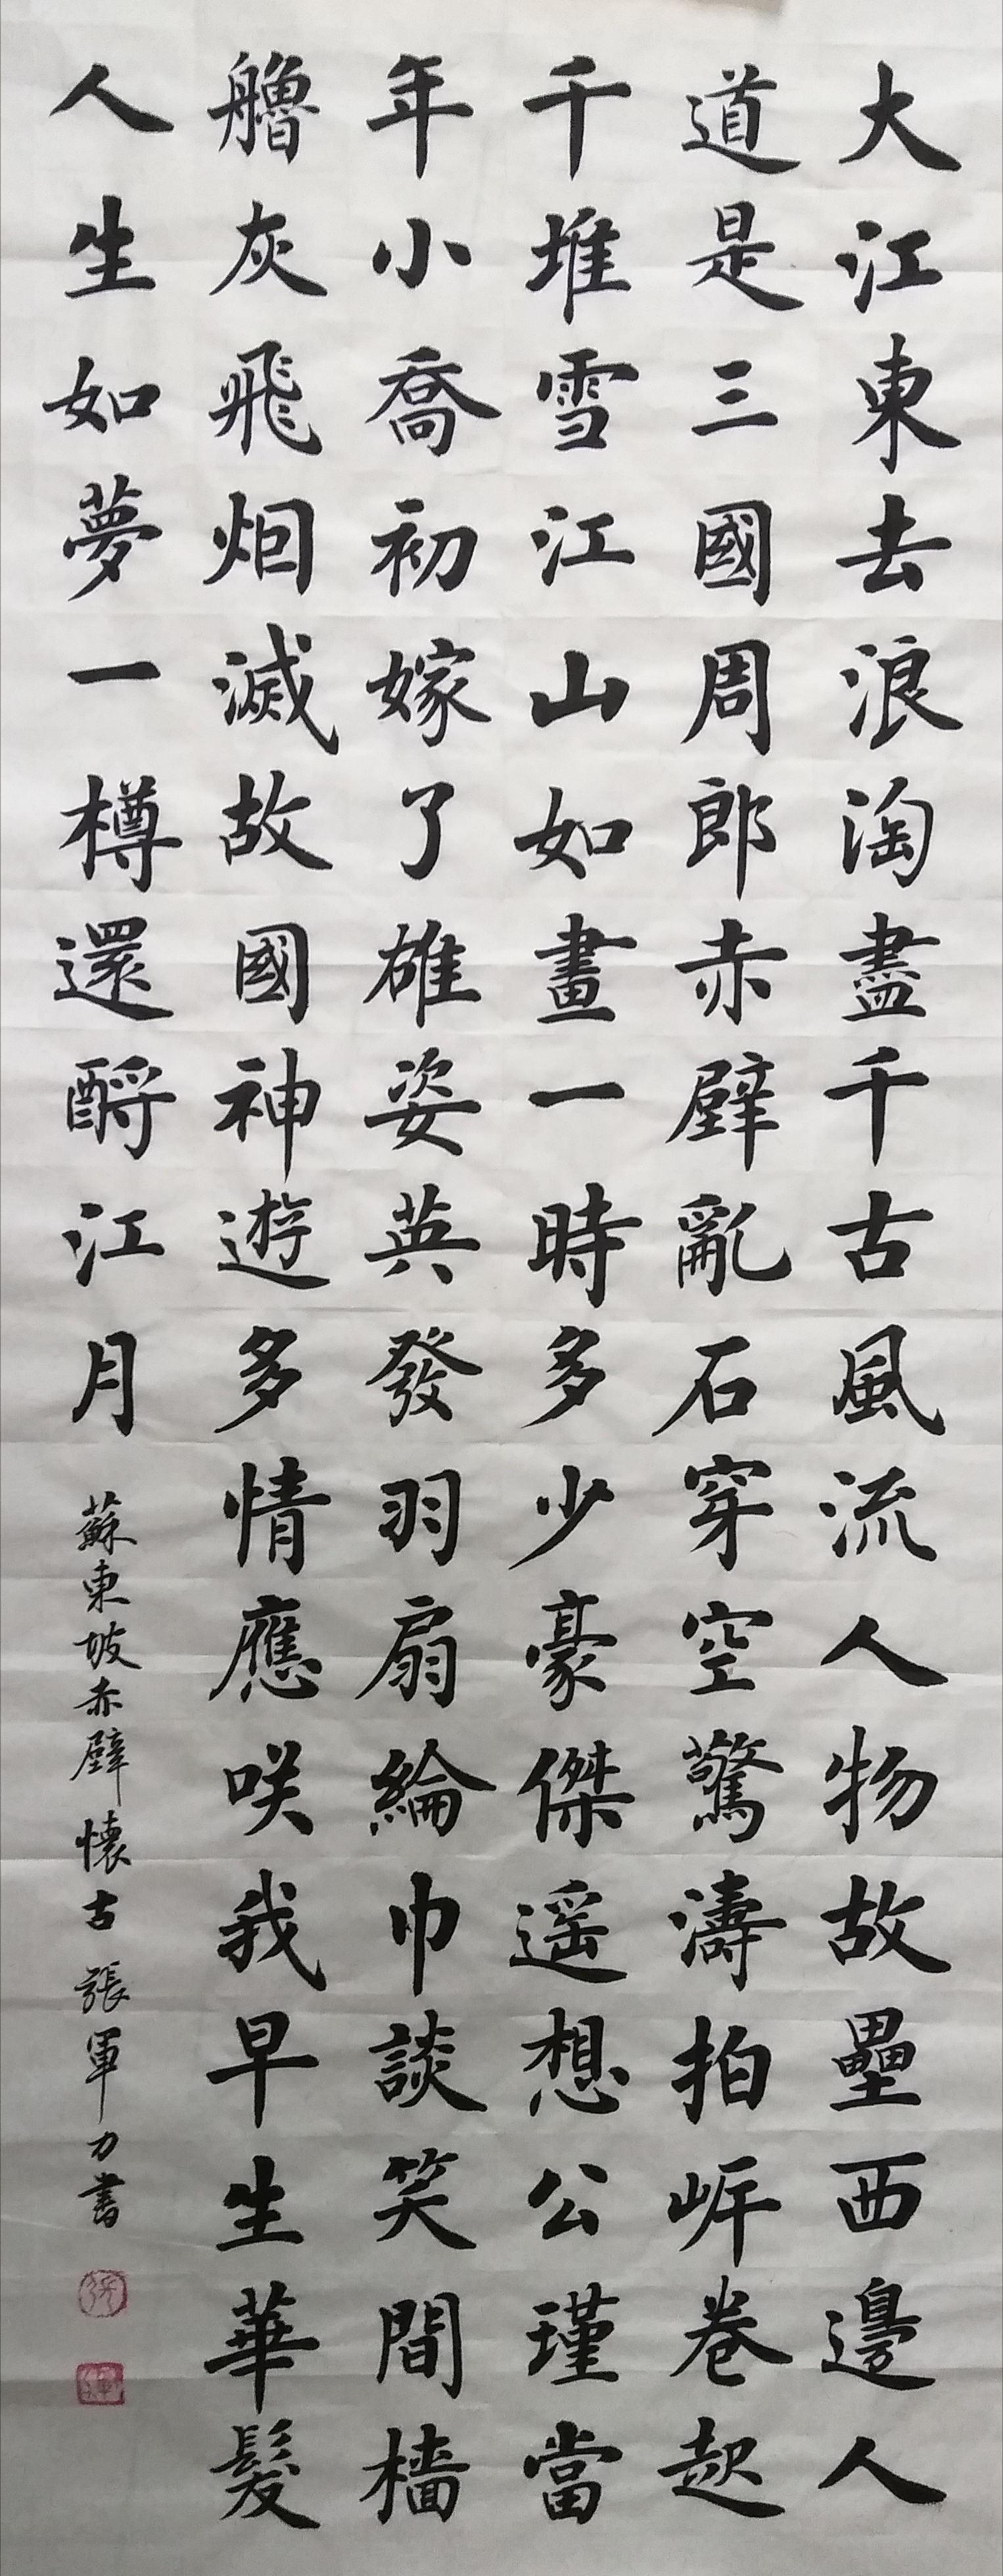 大江東去浪淘盡千古風流人物故壘西邊人
道是三國周郎赤壁亂石穿空驚濤拍岸卷起
千堆雪江山如畫一時多少豪傑遥想公瑾當
年小喬初嫁了雄姿英發羽扇綸巾談笑間檣
艣灰飛烟滅故國神遊多情應咲我早生華髮
人生如夢一樽還酹江月
蘇東坡赤壁懷古張軍力書